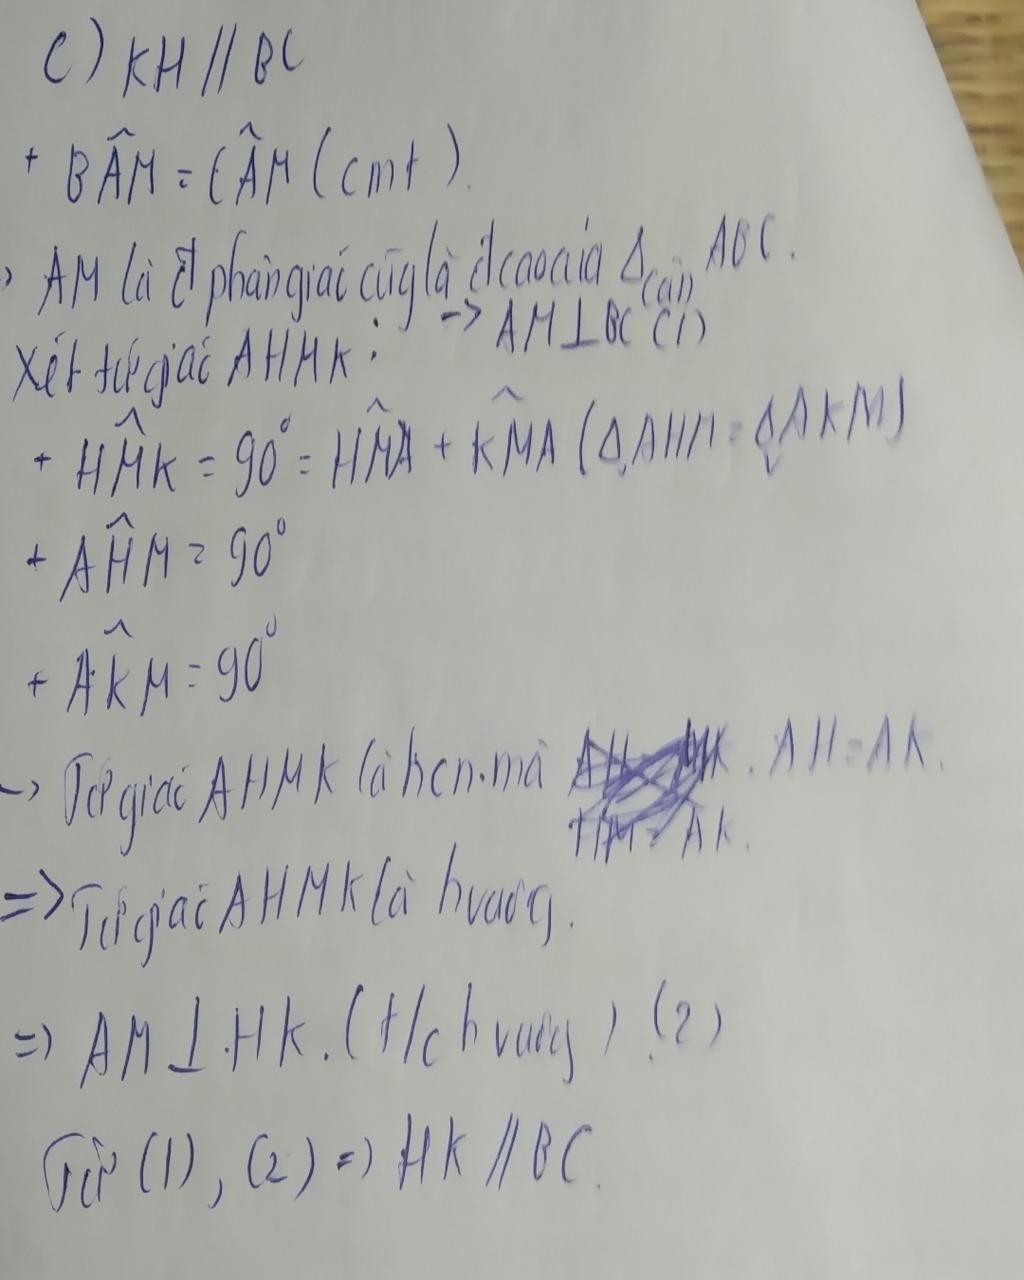 c) KH // BC
+ BÂM = CÂM (cmt).
→ AM là đ phân giác cũg là đ cao của Δ cân ABC.
→ AM ⊥ BC (1)
Xét tứ giác AHMK:
+ HM̂K = 90° = HM̂A + KM̂A (ΔAHM = ΔAKM)
+ AĤM = 90°
+ AK̂M = 90°
→ Tứ giác AHMK là hcn. mà AH = AK.
HM = AK.
=> Tứ giác AHMK là h vuông.
=> AM ⊥ HK. (t/c h vuông) (2)
Từ (1), (2) => HK // BC.